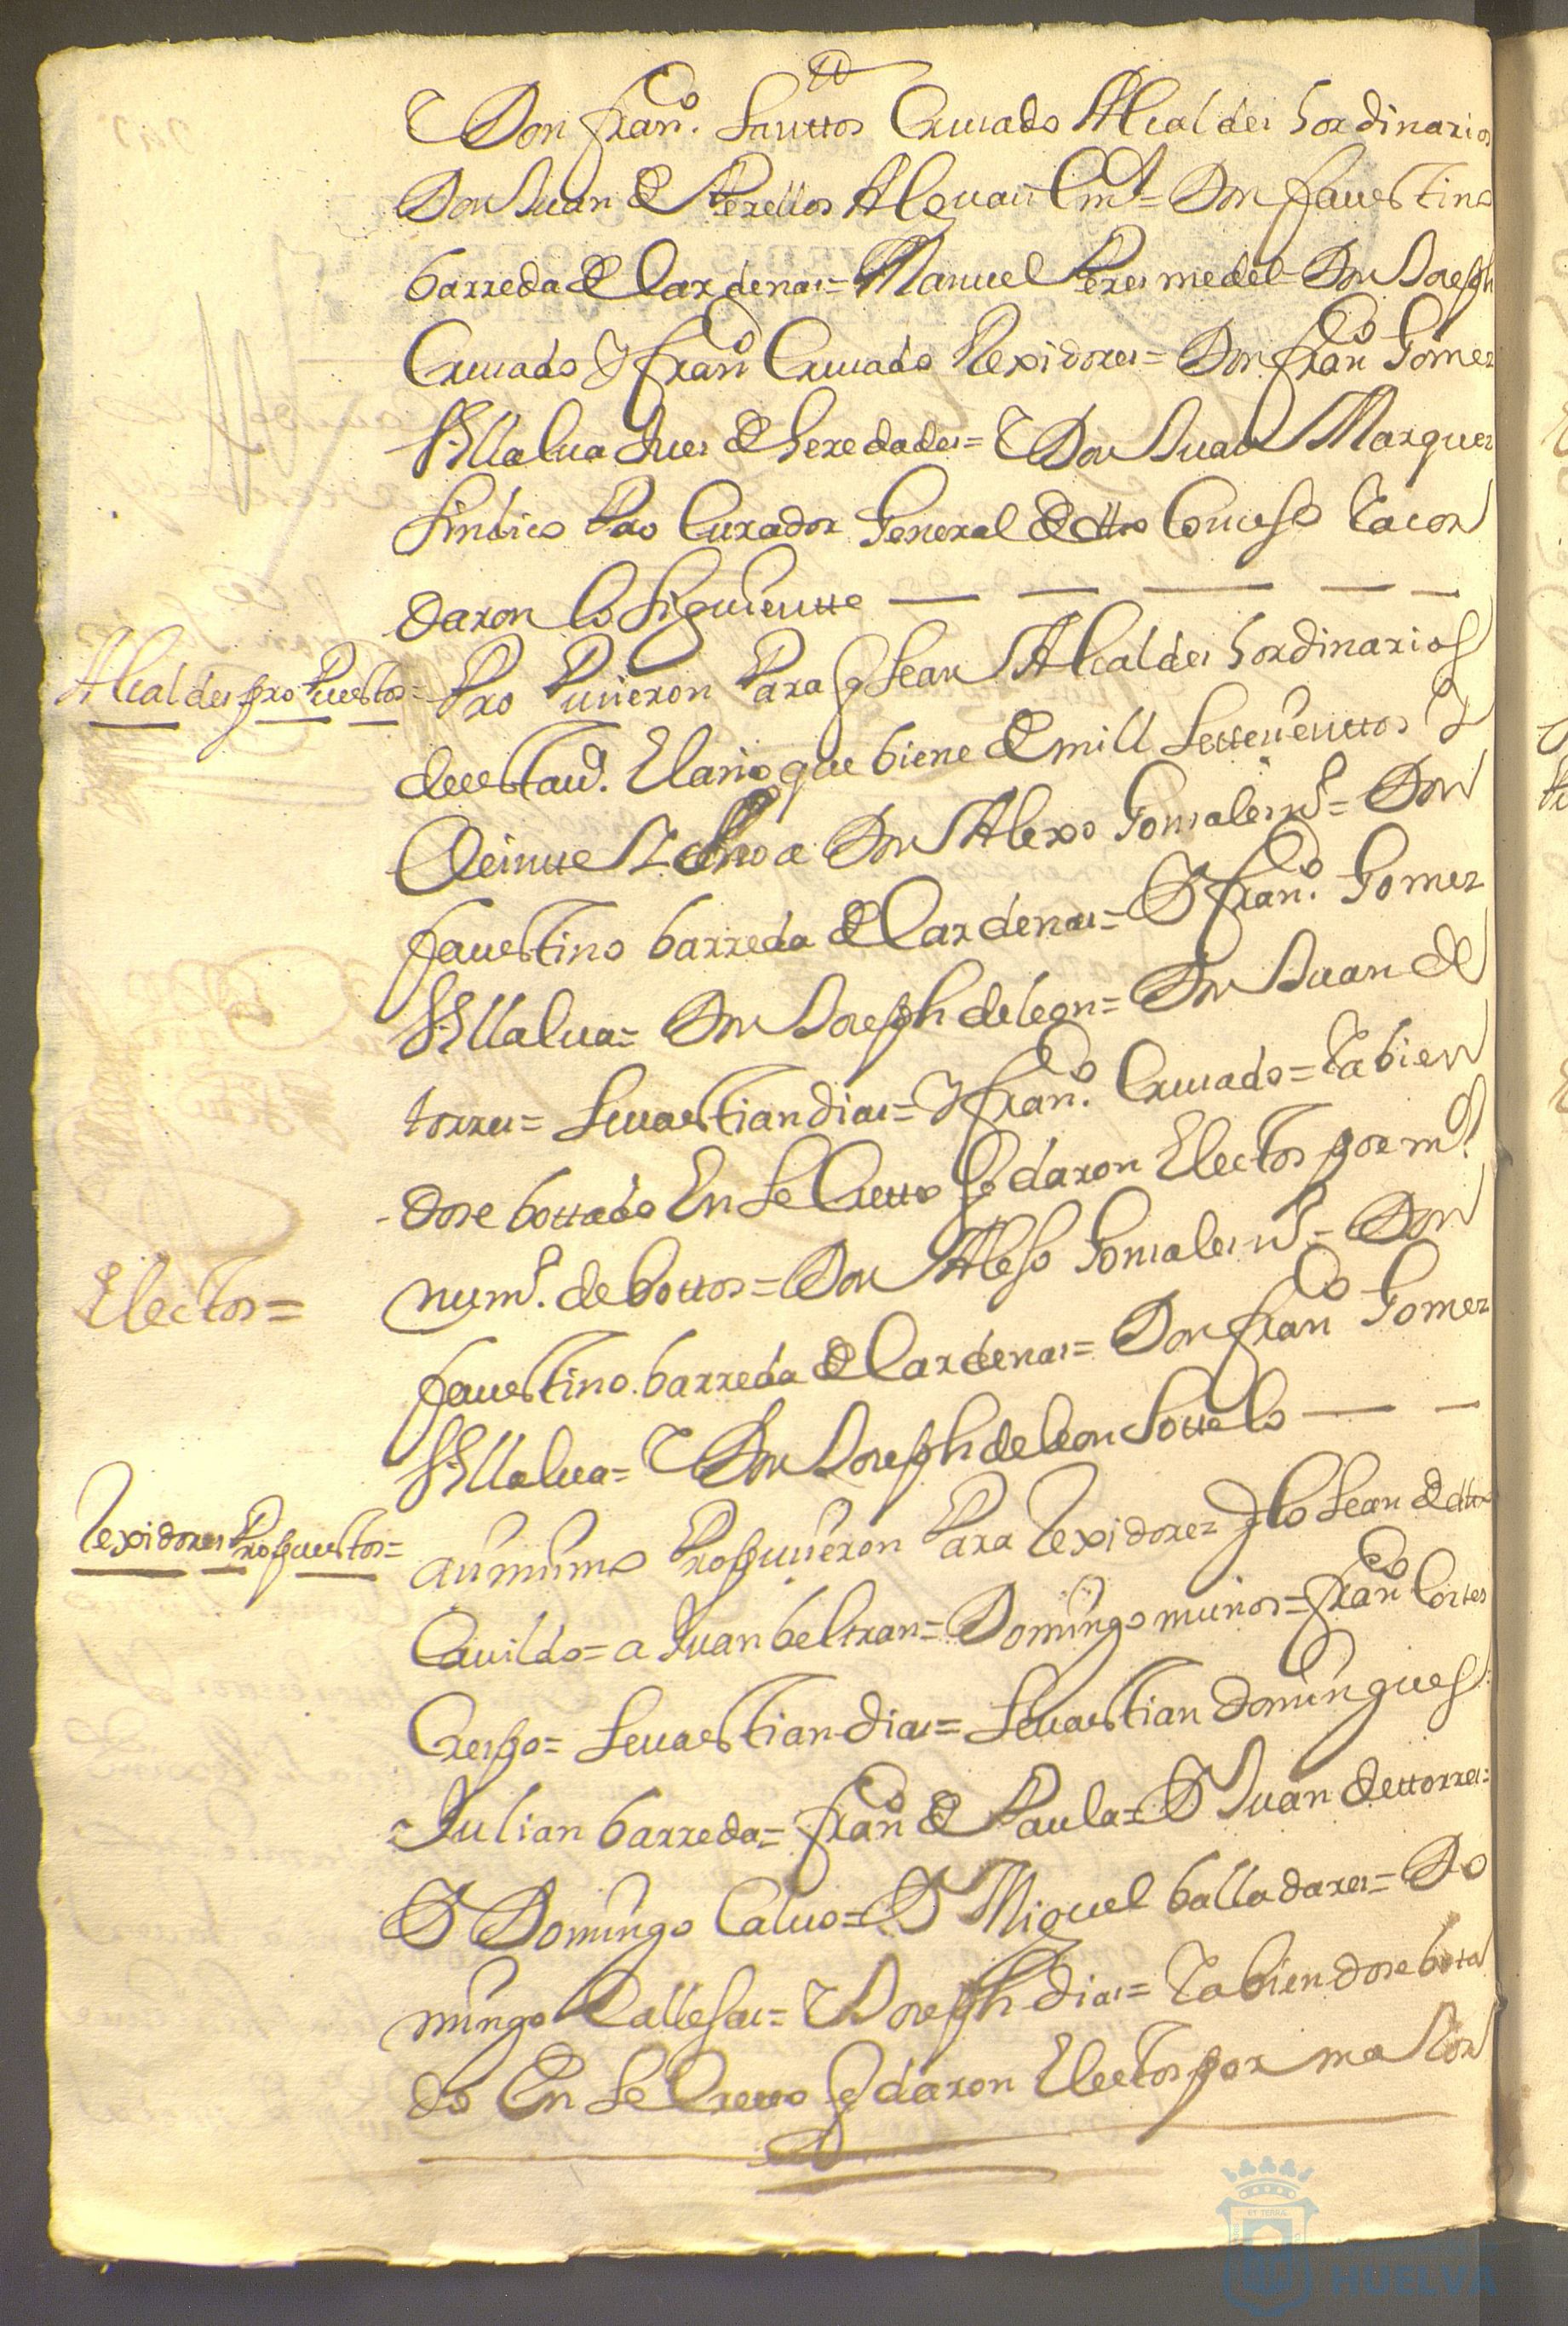 Y Don fran.co Santtos Crusado Alcaldes hordinarios
Don Juan de Perellos Alguasil m.r = Don faustino
barreda de Cardenas = Manuel Peres medel = Don Joseph
Crusado Y fran.co Crusado Rexidores = Don fran.co Gomez
Villalua Jues de heredades = Y Don Juan Marquez
Sindico Pro Curador General de dtto Consejo Y acor
daron lo Siguientte
Alcaldes propuestos =
Pro Pusieron Para q Sean Alcaldes hordinarios
de esta v.a El año que biene de mill Settesienttos Y
Veintte Y a Don Alexo Gonsales = Don
faustino barreda de Cardenas = D fran.co Gomez
Villalua = Don Joseph de leon = Don Juan de
torres = Seuastian dias = Y fran.co Crusado = Y abien
dose bottado En Se Cretto q daron Electos por m.r
Electos =
num.o de bottos = Don Alejo Gonsales = Don
faustino barreda de Cardenas = Don fran.co Gomez
Villalua = Y Don Joseph de leon Sottelo
Rexidores Propuestos =
asimismo Propusieron Para Rexidores q lo Sean de dtto
Cauildo = a Juan beltran = Domingo munos = fran.co Cortes
Crespo = Seuastian dias = Seuastian domingues
= Julian barreda = fran.co de Paula = D Juan de ttorres =
D Domingo Caluo = D Miguel balladares = Do
mingo Vallejas = Y Joseph dias = Y abiendose bota
do En Se Cretto q daron Electos por ma Ior
HUELVA